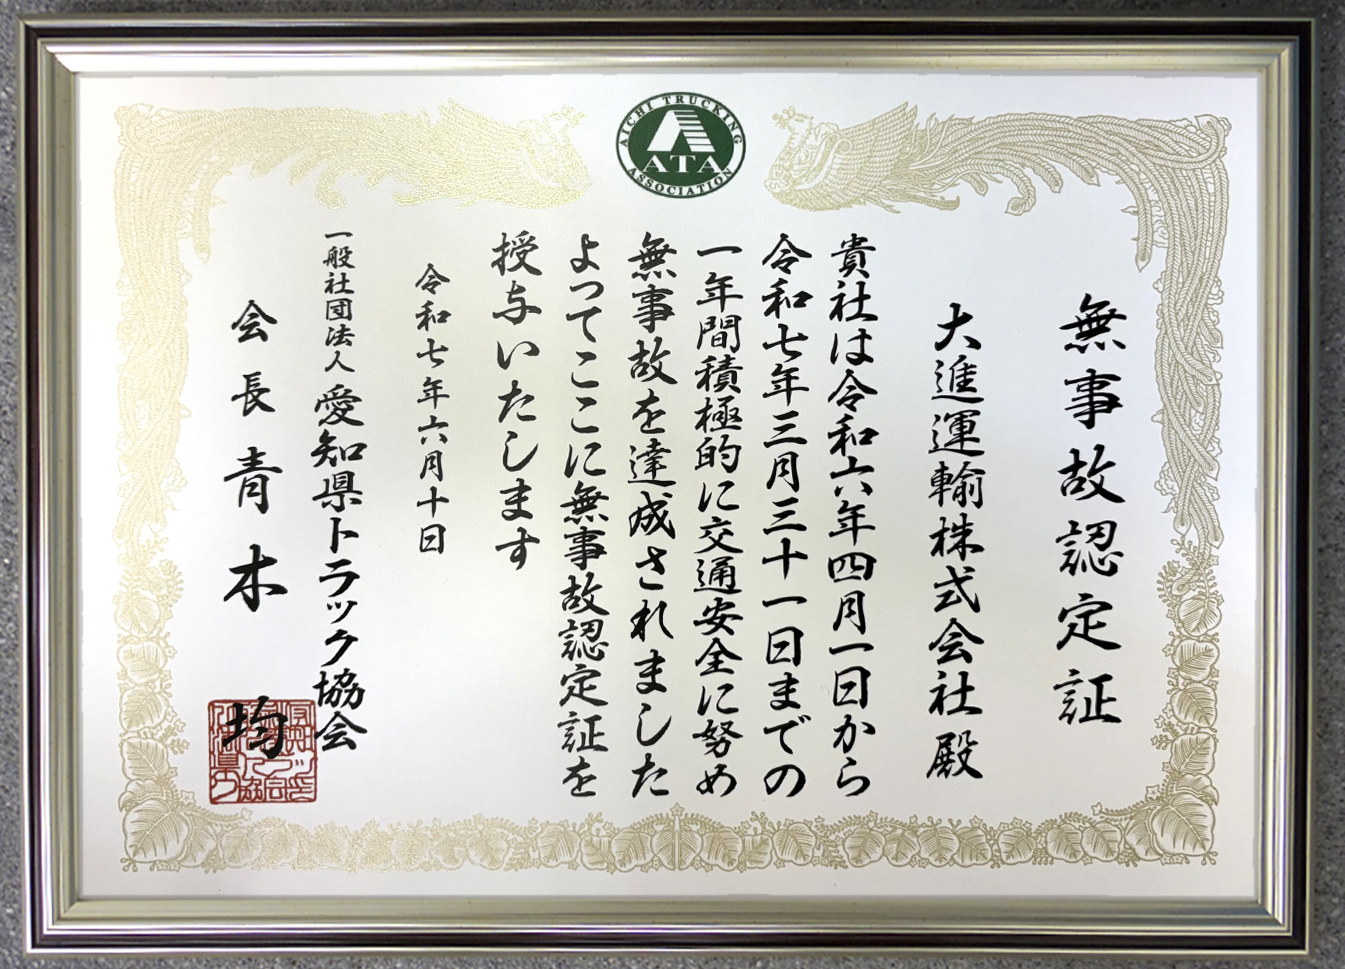 AICHI TRUCKING
ATA
ASSOCIATION
無事故認定証
大進運輸株式会社殿
貴社は令和六年四月一日から
令和七年三月三十一日までの
一年間積極的に交通安全に努め
無事故を達成されました
よってここに無事故認定証を
授与いたします
令和七年六月十日
一般社団法人愛知県トラック協会
会長青木均